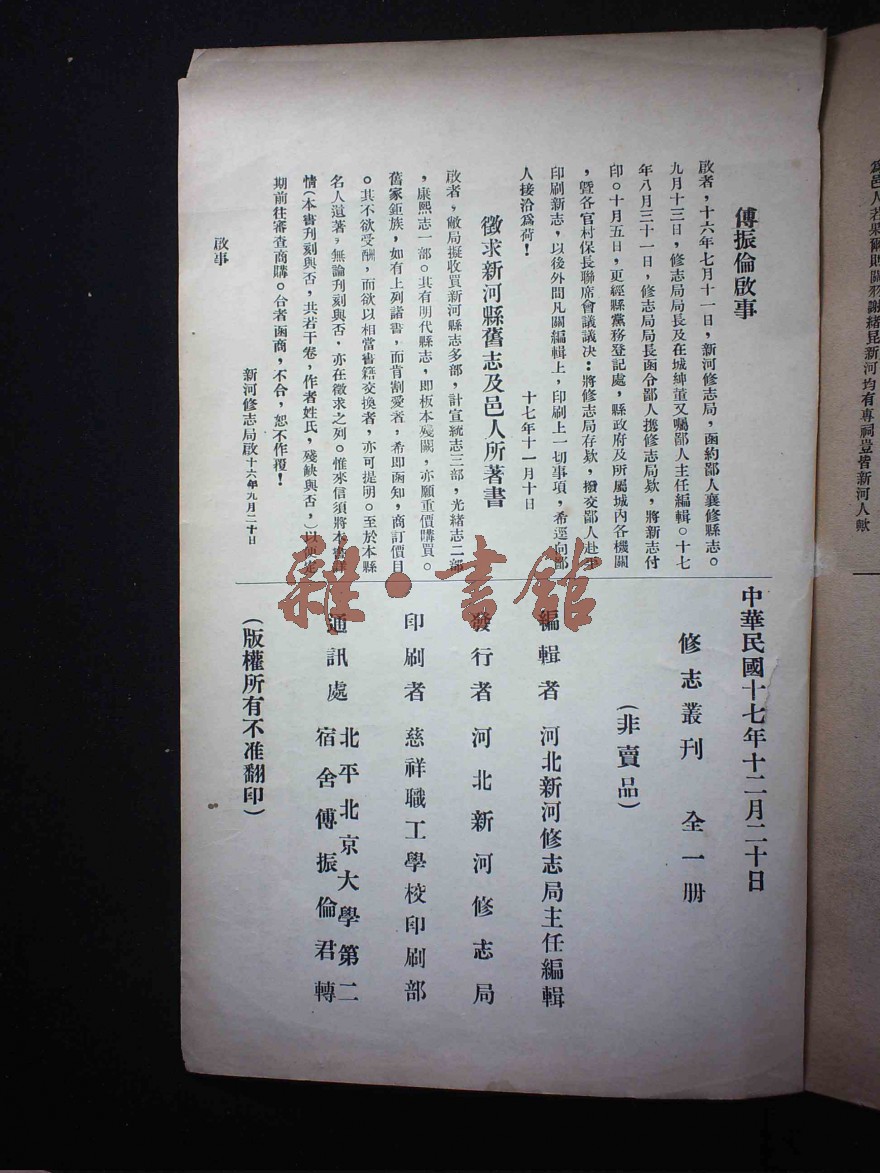 傅振倫啟事
啟者，十六年七月十一日，新河修志局，函約鄙人襄修縣志。
九月十三日，修志局局長及在城紳董又囑鄙人主任編輯。十七
年八月三十一日，修志局局長函令鄙人携修志局欵，將新志付
印。十月五日，更經縣黨務登記處，縣政府及所屬城內各機關
，暨各官村保長聯席會議議决：將修志局存欵，撥交鄙人赴平
印刷新志，以後外間凡關編輯上，印刷上一切事項，希逕向鄙
人接洽爲荷！
十七年十一月十日
徵求新河縣舊志及邑人所著書
啟者，敝局擬收買新河縣志多部，計宣統志三部，光緒志二部
，康熙志一部。共有明代縣志，即板本殘闕，亦願重價購買。
舊家鉅族，如有上列諸書，而肯割愛者，希即函知，商訂價目
。其不欲受酬，而欲以相當書籍交換者，亦可提明。至於本縣
名人遺著，無論刋刻與否，亦在徵求之列。惟來信須將本書詳
情（本書刋刻與否，共若干卷，作者姓氏，殘缺與否，）以便定
期前往審查商購。合者函商，不合，恕不作覆！
新河修志局啟十六年九月二十日
啟事
中華民國十七年十二月二十日
修志叢刊 全一册
（非賣品）
編輯者 河北新河修志局主任編輯
發行者 河北新河修志局
印刷者 慈祥職工學校印刷部
通訊處 北平北京大學第二
宿舍傅振倫君轉
（版權所有不准翻印）
雜·書館
爲邑人若果爾則關務謝緒昆新河均有專祠豈皆新河人歟